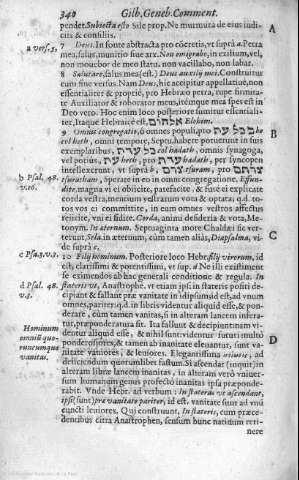 340 Gilb. Geneb. Comment.
pendet. Subiecta esto Sile prop. Ne murmura de eius iudi-
ciis & consiliis.
a vers. 3. 7 Deus. In fonte abstracta pro cõcretis, vt suprà a. Petra
mea, salus, munitio siue arx. Non emigrabo, in exilium, vel,
non mouebor de meo statu. non vacillabo, non labar.
8 Salutare, salus mea (est.) Deus auxilij mei. Construitur
cum fine versus. Nam Deus, hîc accipitur appellatiuè, non
essentialiter & propriè, pro Hebræo petra, rupe firmita-
te Auxiliator & roborator meus, itémque mea spes est in
Deo vero. Hoc enim loco posterius sumitur essentiali-
ter, itaque Hebraicè est אלהים Elohim.
9 Omnis congregatio, ô omnes populi, pro בכל עת be
col heth, omni tempore, Septu. habere potuerunt in suis
exemplaribus, כל עדת col hadath, omnis synagoga,
vel potius, עת heth, pro עדת hadath, per syncopen
b Psal. 48. v. 16. intellexerunt, vt suprà b,
tsuratham, operate in eo omni congregatione. Effun-
dite. magna vi ei obiicite, patefacite, & fusè ei explicate
corda vestra, mentium vestrarum vota & optata. q.d. to-
tos vos ei committite, in eum omnes vestros affectus
reiicite, vni ei fidite. Corda, animi desideria & vota, Me-
tonym. In æternum. Septuaginta more Chaldæi sic ver-
terunt Sela. in æternum, cùm tamen aliàs, Diapsalma, vi-
de suprà c.
c Psa. 3. v. 3. 10 Filij hominum. Posteriore loco Hebr. filij virorum, id
est, clarissimi & potentissimi, vt sup. d Ne illi existiment
se eximendos ab hac generali conditione & regula. In
d Psal. 48. v. 3. stateris vt, Anastrophe. vt etiam ips in stateris positi de-
cipiant & fallant præ vanitate in id ipsum id est, ad vnum
omnes, pariter. q.d. in libris videntur aliquid esse, & pon-
derare, cùm tamen vanitas, si in alteram lancem infera-
tur, præponderatura sit. Ita fallunt & decipiunt: nam vi-
dentur aliquid esse, & nihil sunt: videntur futuri multò
Hominum omniũ quo- rumcumque vanitas. ponderosiores, & tamen ab inanitate eleuantur, sunt va-
nitate vaniores, & leniores. Elegantissima auxesis, ad
deiiciendum quorumlibet fastum. Si ascendat (inquit) in
alteram libræ lancem inanitas, in alteram verò vniuer-
sum humanum genus profectò inanitas ipsa præponde-
rabit. Vnde Hebr. ad verbum: In stateris vt ascendant,
ipsi (sunt) præ vanitate pariter, id est, vanitate sunt ad vnũ
cuncti leniores. Qui construunt, In stateris, cum præce-
dentibus citra Anastrophen, sensum hunc nanium reti-
nere
A
B
C
D